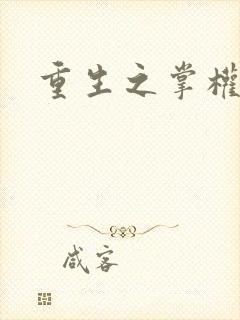 重生之掌權
咸客